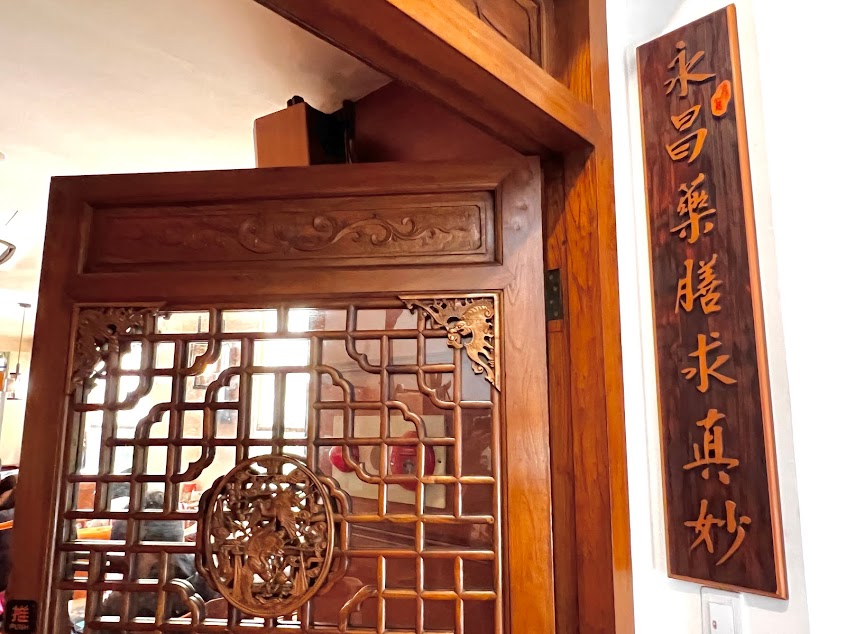 永昌藥膳求真妙
推